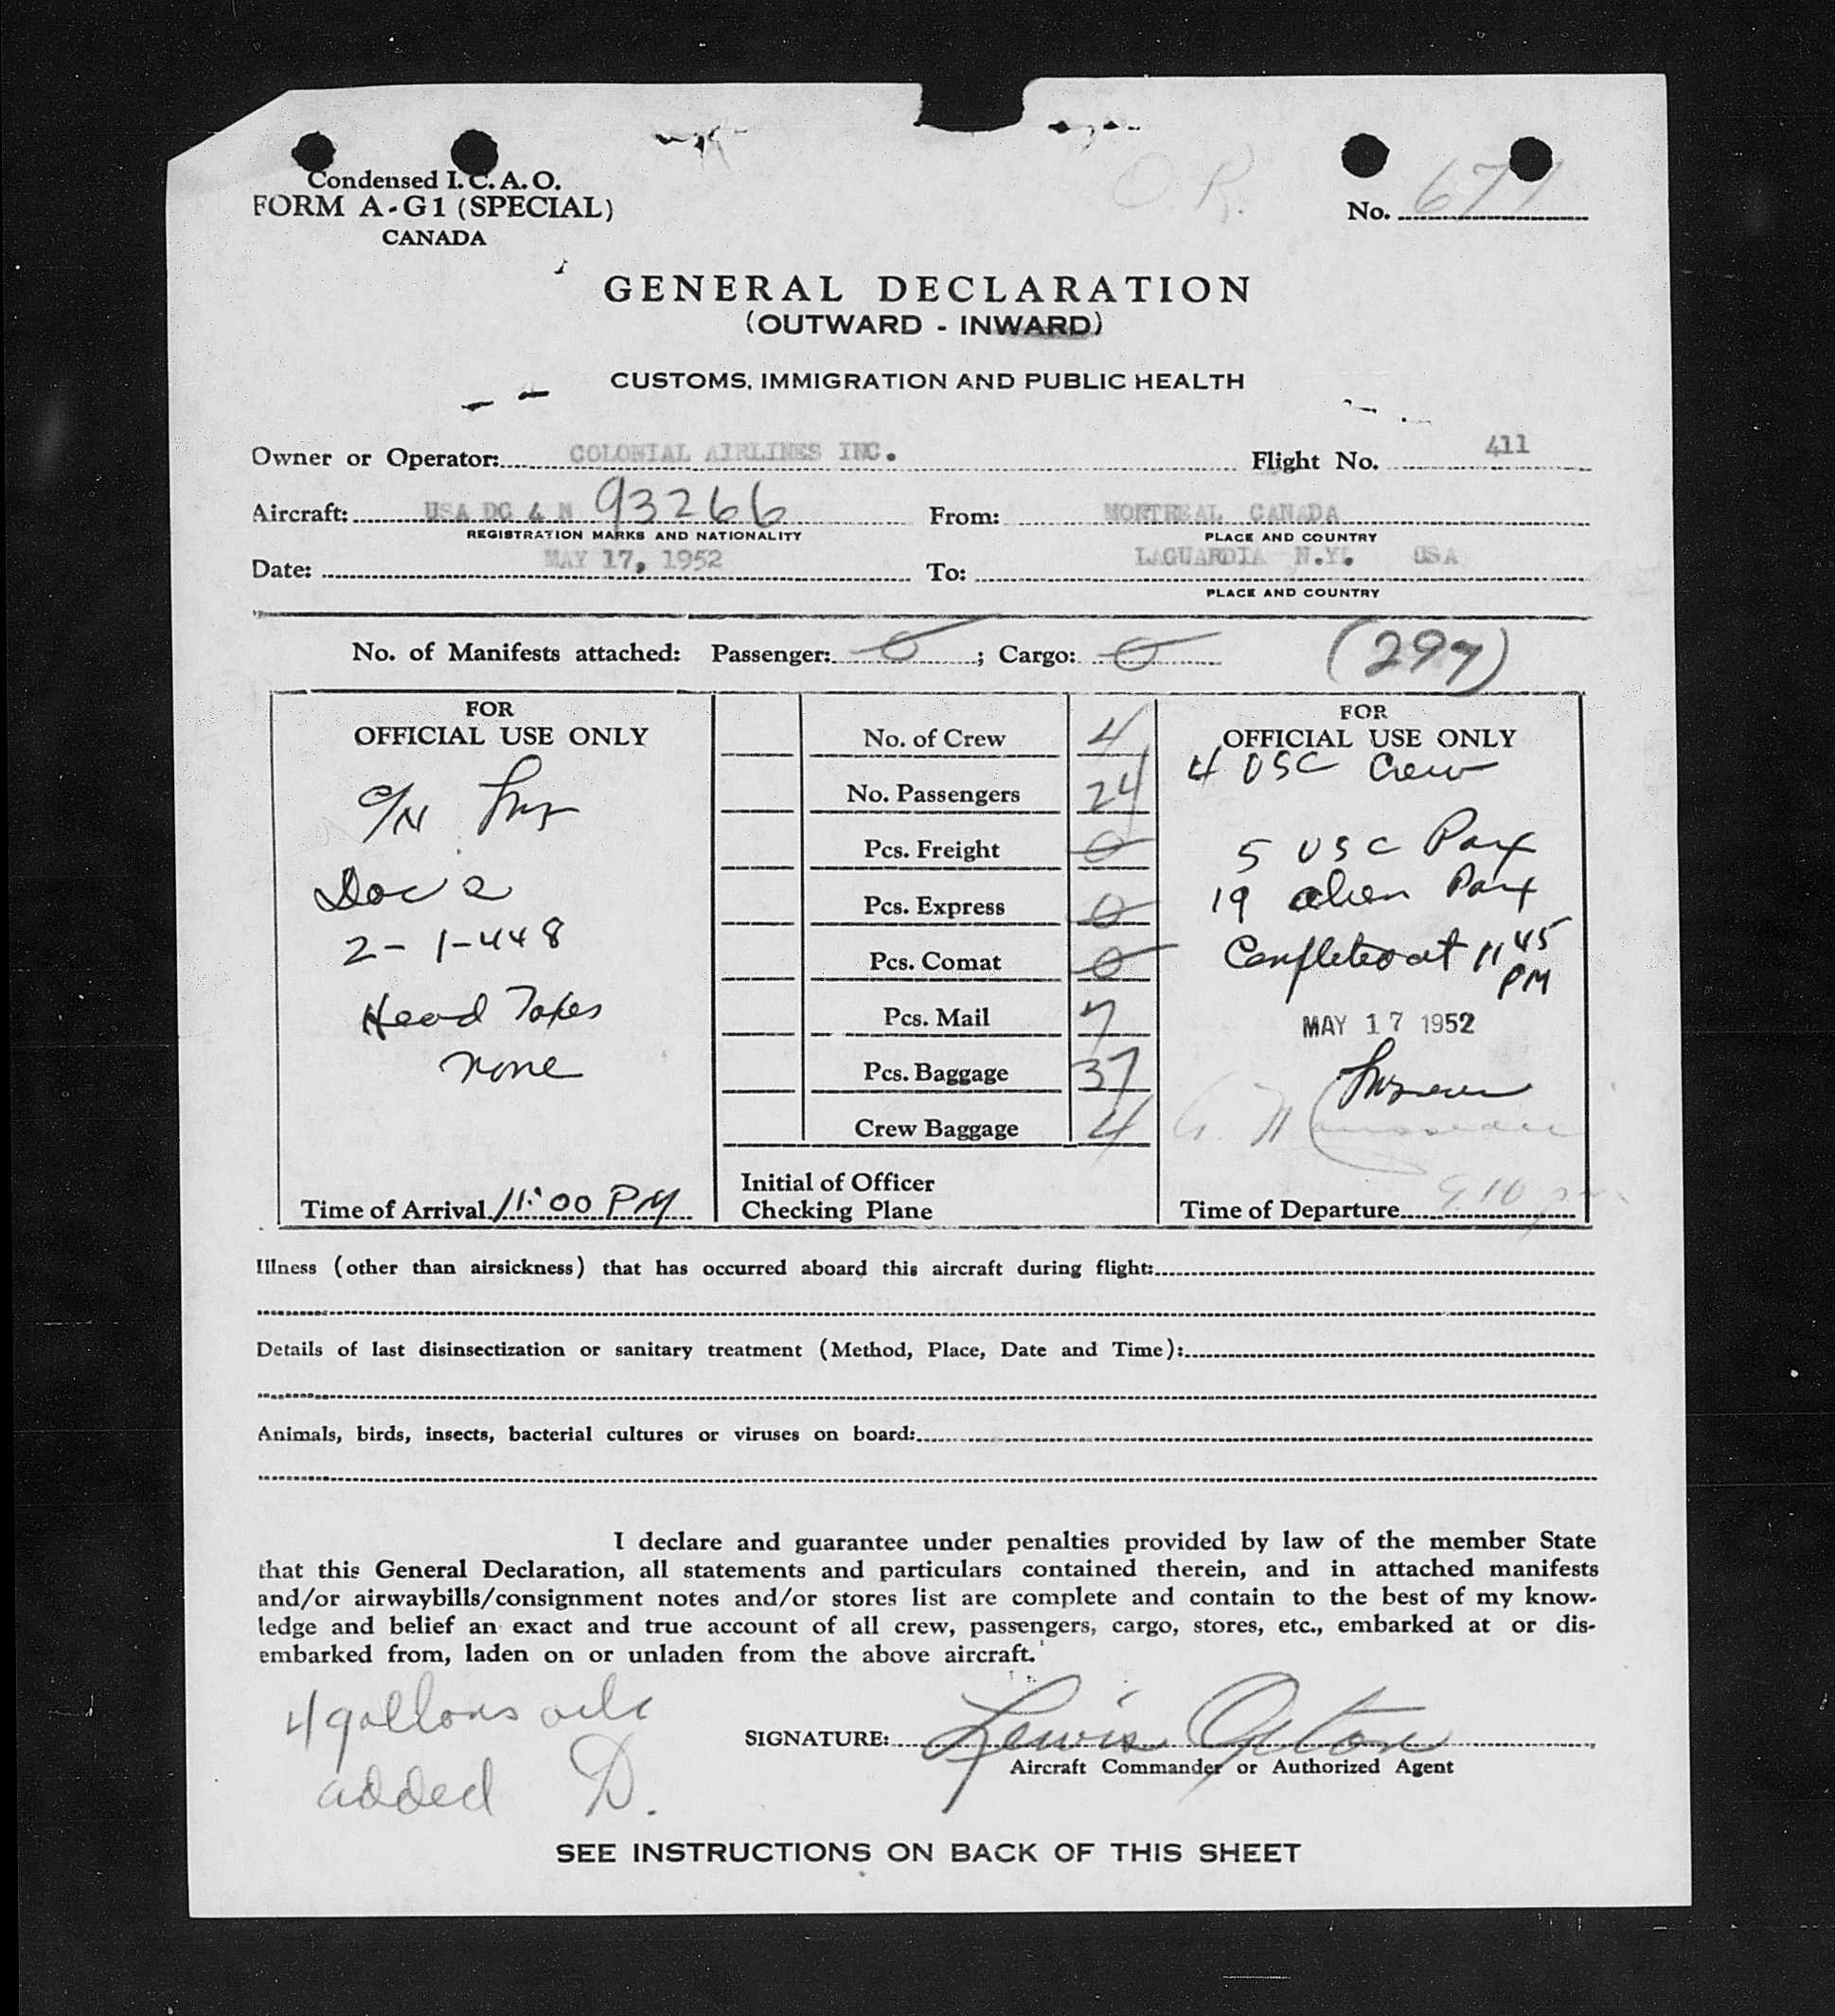 Condensed I. C. A. O.
FORM A-G1 (SPECIAL)
CANADA
O. R.
No. 677
GENERAL DECLARATION
(OUTWARD - INWARD)
CUSTOMS, IMMIGRATION AND PUBLIC HEALTH
Owner or Operator: COLONIAL AIRLINES INC. Flight No. 411
Aircraft: USA DC 4 N 93266 From: MONTREAL CANADA
REGISTRATION MARKS AND NATIONALITY PLACE AND COUNTRY
Date: MAY 17, 1952 To: LAGUARDIA N.Y. USA
PLACE AND COUNTRY
No. of Manifests attached: Passenger: 0 ; Cargo: 0 (297)
FOR
OFFICIAL USE ONLY
Doc's
2-1-448
Head Taxes
none
Time of Arrival 11:00 PM
No. of Crew 4
No. Passengers 24
Pcs. Freight 0
Pcs. Express 0
Pcs. Comat 0
Pcs. Mail 7
Pcs. Baggage 37
Crew Baggage 4
Initial of Officer
Checking Plane
FOR
OFFICIAL USE ONLY
4 USC Crew
5 USC Pax
19 alien Pax
Completed at 11 45
PM
MAY 17 1952
Time of Departure 9.10 pm
Illness (other than airsickness) that has occurred aboard this aircraft during flight:
Details of last disinsectization or sanitary treatment (Method, Place, Date and Time):
Animals, birds, insects, bacterial cultures or viruses on board:
I declare and guarantee under penalties provided by law of the member State
that this General Declaration, all statements and particulars contained therein, and in attached manifests
and/or airwaybills/consignment notes and/or stores list are complete and contain to the best of my know-
ledge and belief an exact and true account of all crew, passengers, cargo, stores, etc., embarked at or dis-
embarked from, laden on or unladen from the above aircraft.
4 gallons oil
added D.
SIGNATURE: Lewis
Aircraft Commander or Authorized Agent
SEE INSTRUCTIONS ON BACK OF THIS SHEET